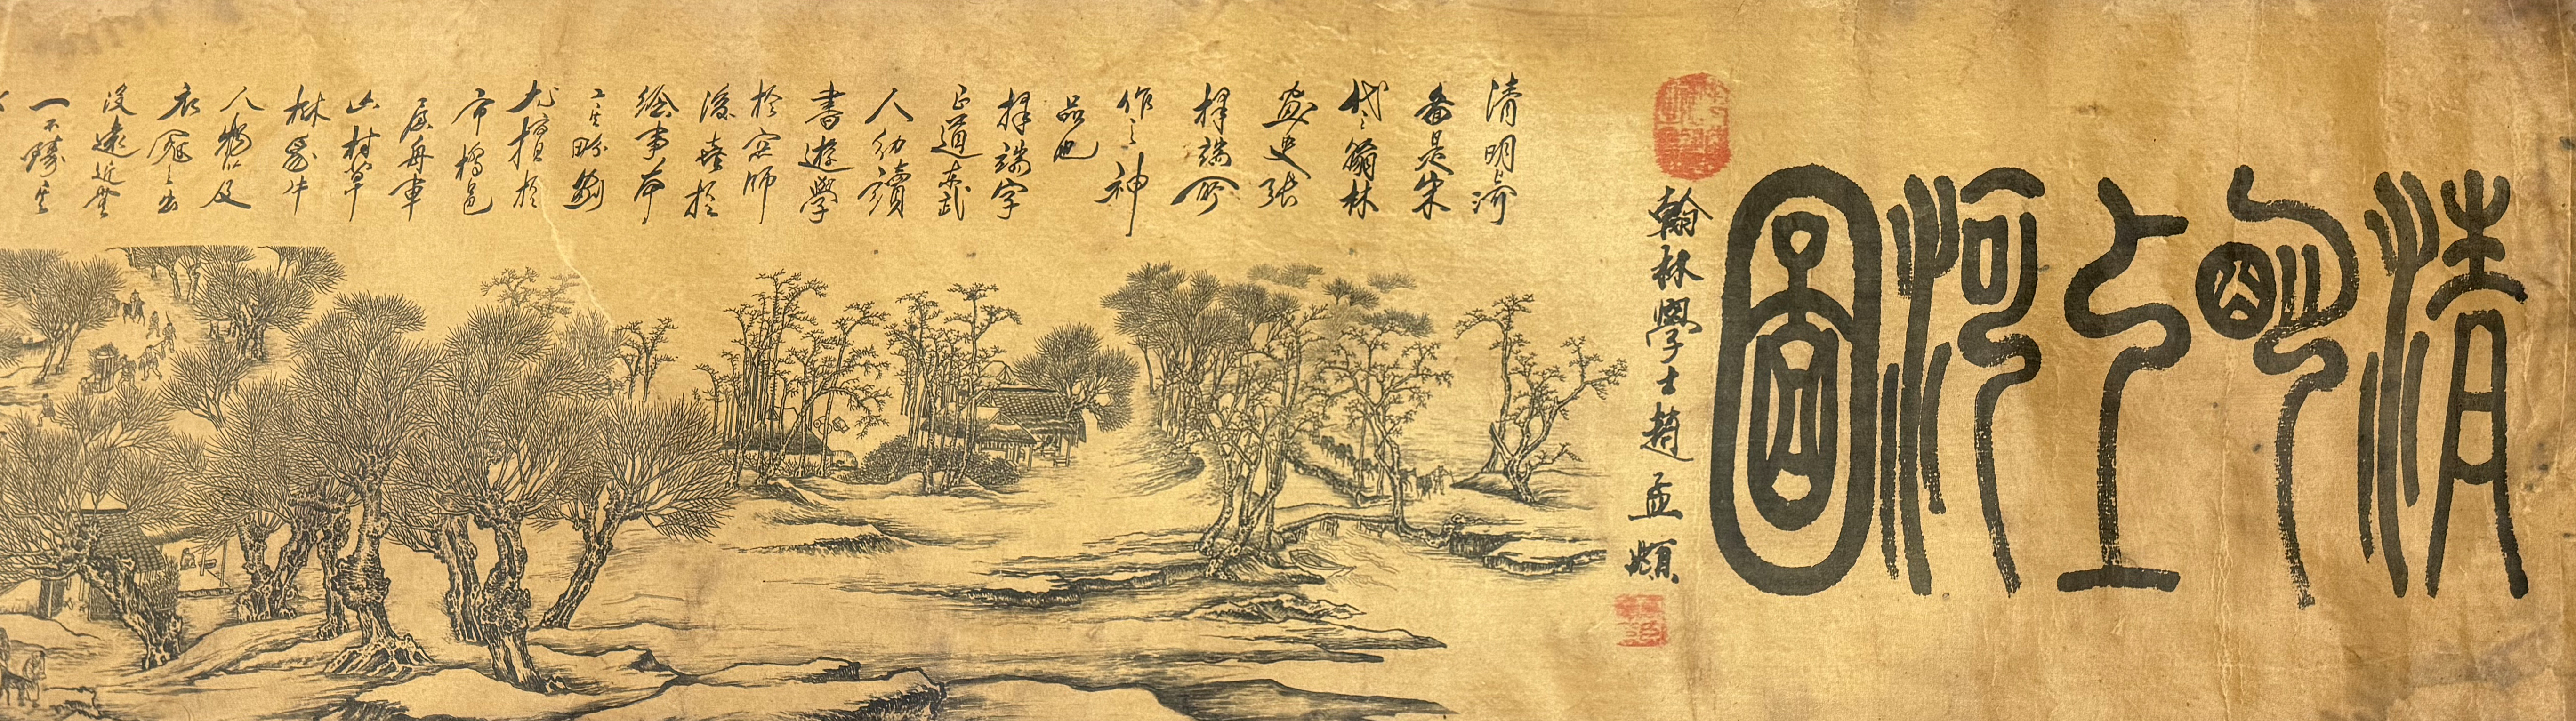 清明上河圖
翰林學士趙孟頫
清明上河
啚是宋
代之翰林
畫史張
擇端所
作之神
品也
擇端字
正道東武
人幼讀
書遊學
於京師
後喜於
繪事本
工其畍劃
尤擅於
市橋邑
屋舟車
山村草
林馬牛
人物以及
衣冠之出
沒遠近無
一不臻其